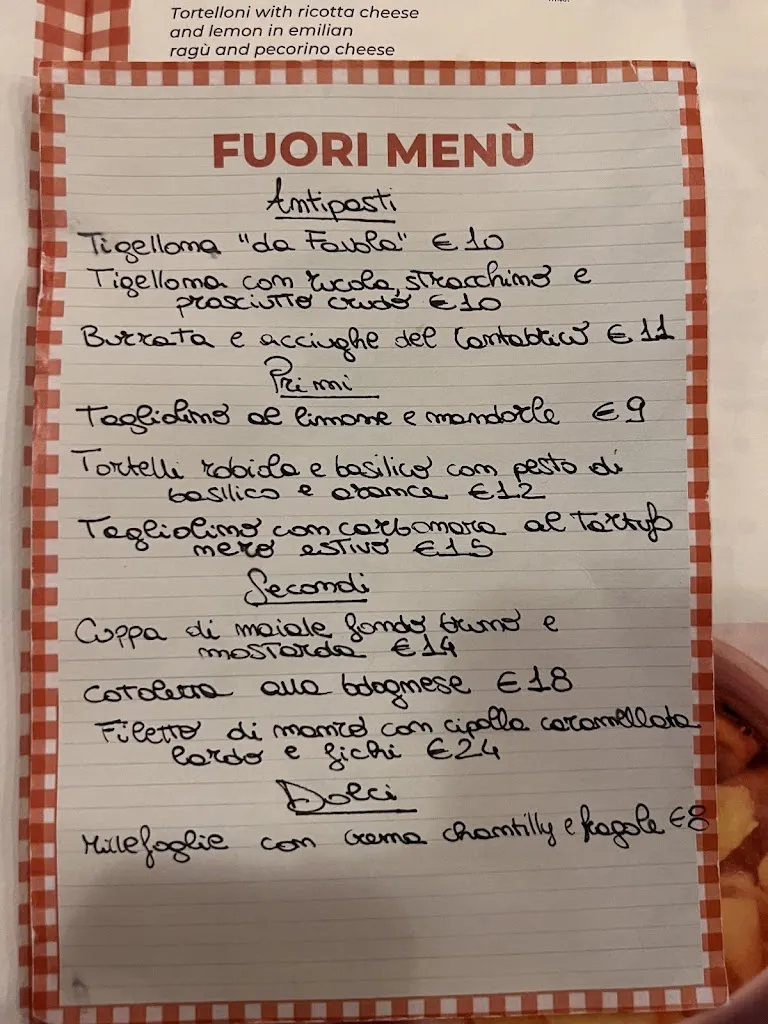 Tortelloni with ricotta cheese
and lemon in emilian
ragù and pecorino cheese
FUORI MENÙ
Antipasti
Tigellona "da Favola" €10
Tigellona con rucola, stracchino e
prosciutto crudo €10
Burrata e acciughe del Cantabrico €11
Primi
Tagliolino al limone e mandorle €9
Tortelli robiola e basilico con pesto di
basilico e arance €12
Tagliolino con carbonara al Tartufo
nero estivo €15
Secondi
Coppa di maiale fondo bruno e
mostarda €14
Cotoletta alla bolognese €18
Filetto di manzo con cipolla caramellata
lardo e fichi €24
Dolci
Millefoglie con crema chantilly e fragole €8